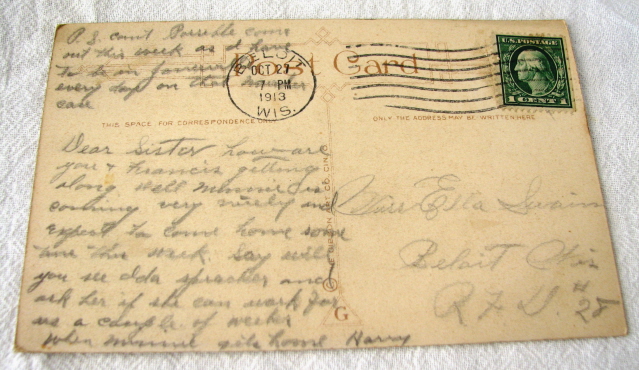 P. S. cant Possible come
out this week as I have
to be in Janesville
every day on that
case
Post Card
BELOIT
OCT 27
7 PM
1913
WIS.
U.S. POSTAGE
1 CENT 1
THIS SPACE FOR CORRESPONDENCE ONLY
ONLY THE ADDRESS MAY BE WRITTEN HERE
Dear Sister how are
you & Francis getting
along well Minnie is
coming very nicely and
expect to come home some
time this week. Say will
you see Ida and
ask her if she can work for
us a couple of weeks
when Minnie gets home Harry
G
Miss Ella Swain
Beloit Wis
R F D. # 28